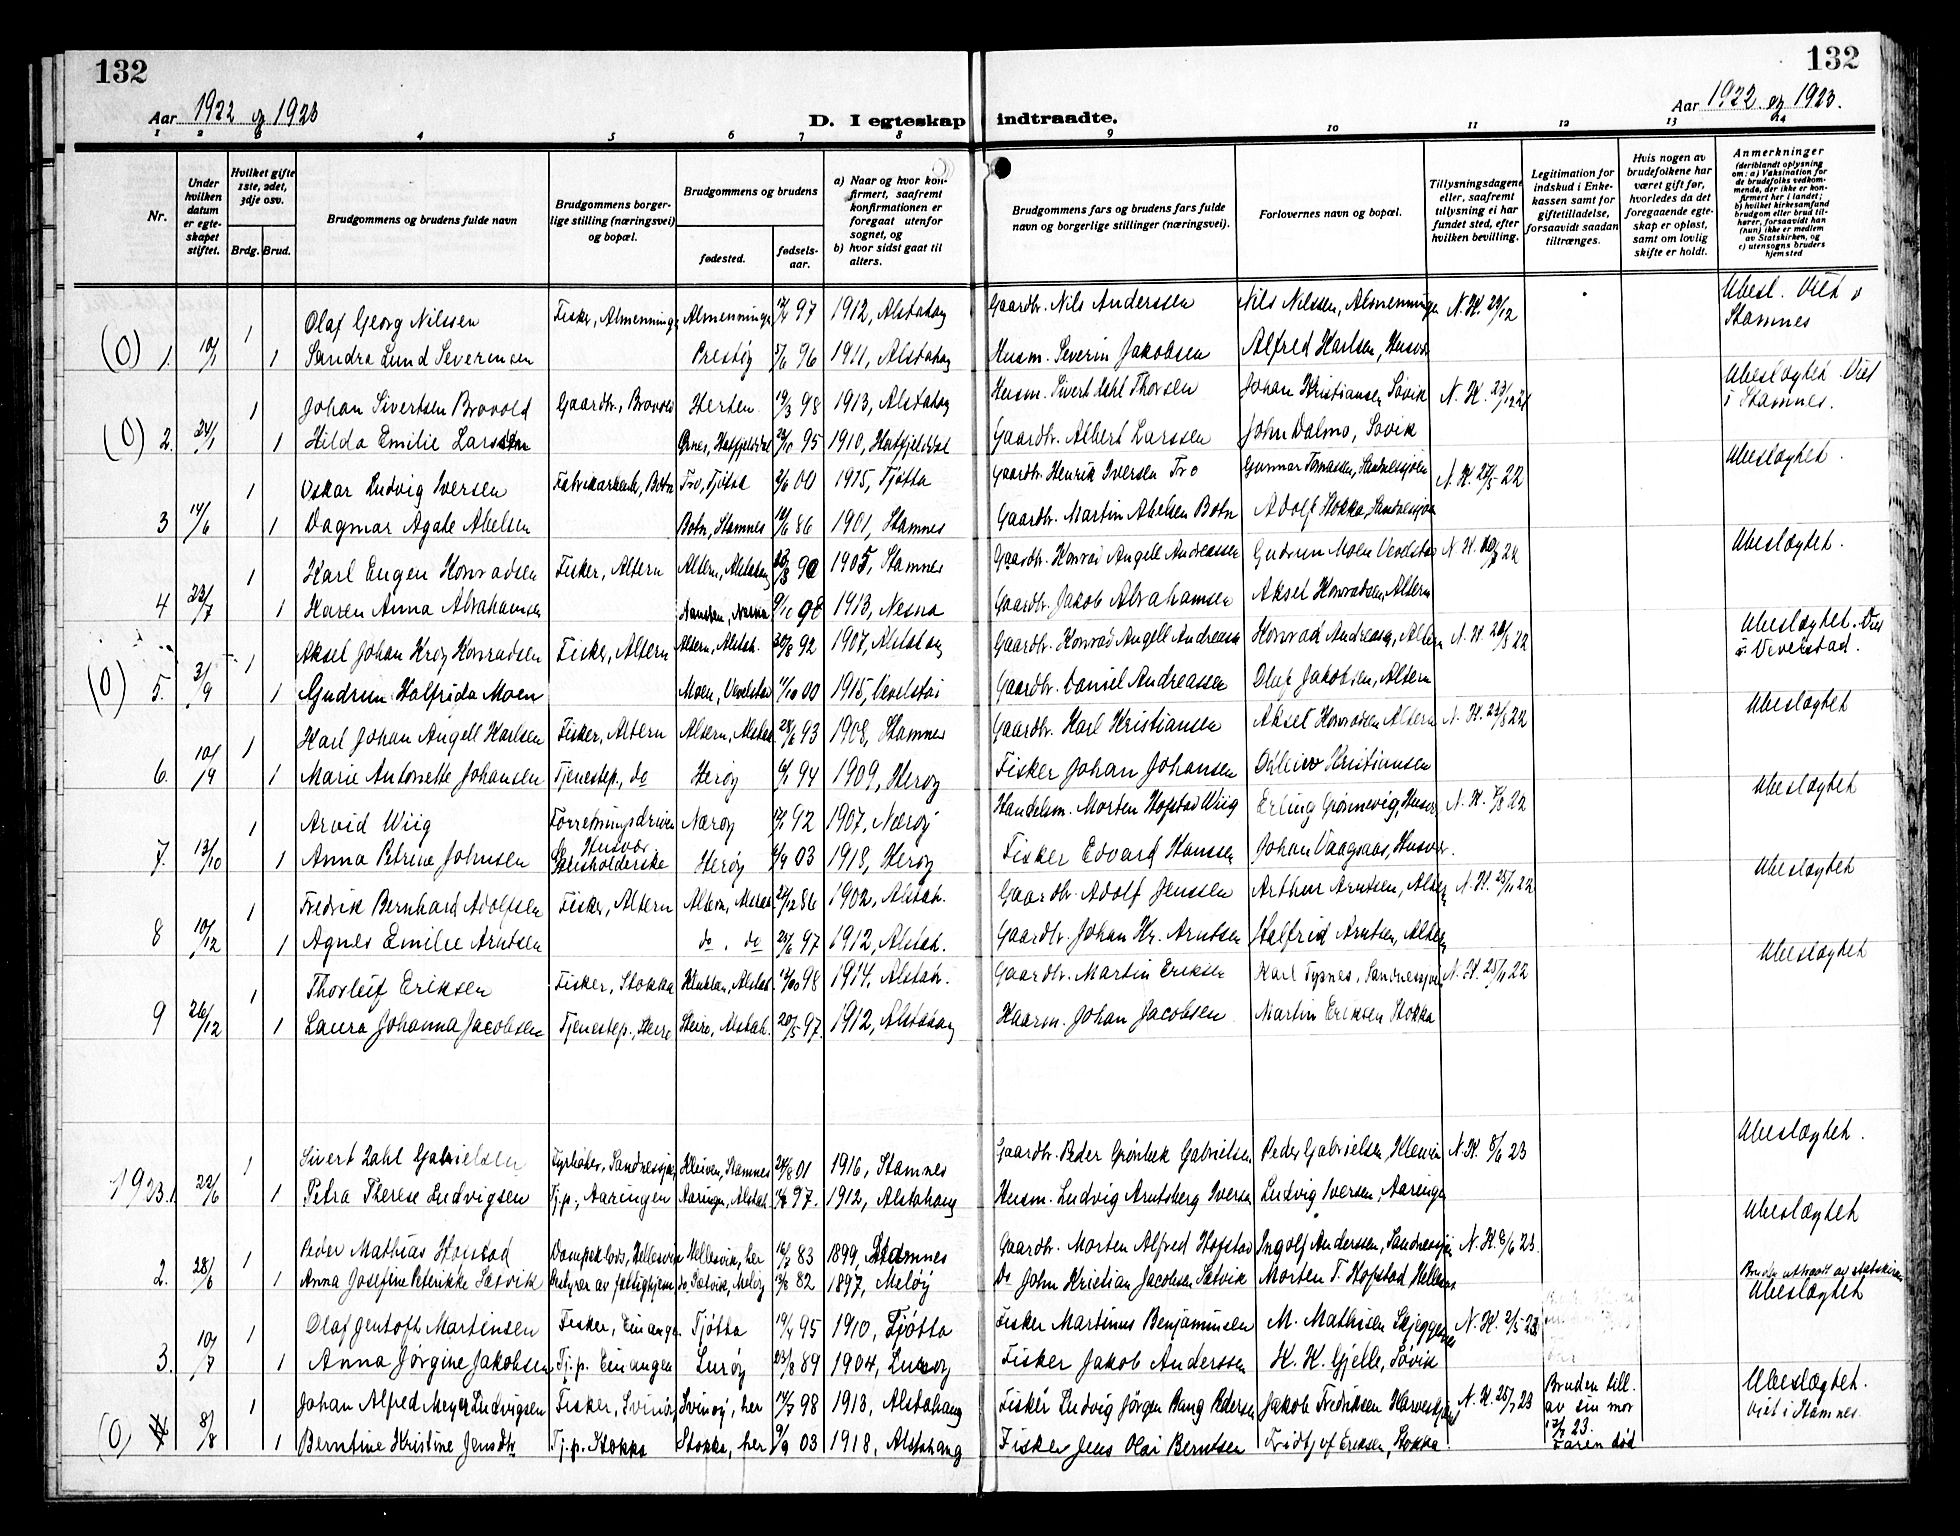 132
132
Aar 1922 og 1923
D. I egteskap indtraadte.
Aar 1922 og 1923.
1 2 3 4 5 6 7 8 9 10 11 12 13 14
Nr.
Under hvilken datum er egteskapet stiftet.
Hvilket gifte 1ste, 2det, 3dje osv.
Brdg. Brud.
Brudgommens og brudens fulde navn
Brudgommens borgerlige stilling (næringsvei) og bopæl.
Brudgommens og brudens
fødested.
fødselsaar.
a) Naar og hvor konfirmert, saafremt konfirmationen er foregaat utenfor sognet, og
b) hvor sidst gaat til alters.
Brudgommens fars og brudens fars fulde navn og borgerlige stillinger (næringsvei).
Forlovernes navn og bopæl.
Tillysningsdagene eller, saafremt tillysning ei har fundet sted, efter hvilken bevilling.
Legitimation for indskud i Enkekassen samt for giftetilladelse, forsaavidt saadan tiltrænges.
Hvis nogen av brudefolkene har været gift før, hvorledes da det foregaaende egteskap er opløst, samt om lovlig skifte er holdt.
Anmerkninger
(deriblandt oplysning om: a) Vaksination for de brudefolks vedkommende, der ikke er konfirmert her i landet; b) hvilket kirkesamfund brudgom eller brud tilhører, forsaavidt han (hun) ikke er medlem av Statskirken, og c) utensogns bruders hjemsted
Ubesl. Viet i Stamnes
1 Olaf Georg Nilssen Fisker, Almenninge Almenninge 97 1912, Alstahaug Gaardbr. Nils Anderssen Nils Nilssen, Almenninge N. K. 29/12
(0) 1. 10/1 1 Sandra Lund Severinsen Prestøy 96 1911, Alstahaug Husm. Severin Jakobsen Alfred Karlsen, Husvær
Ubeslægtet. Viet i Stamnes.
1 Johan Sivertsen Brovold Gaardbr., Brovold Herten 19/3 98 1913, Alstahaug Husm. Sivert Dahl Thorsen Johan Kristiansen Søvik N. K. 23/12 21
(0) 2. 24/1 1 Hilda Emilie Larssen Hatfjeldal 95 1910, Hatfjelddal Gaardbr. Albert Larssen John Dalmo, Søvik
Ubeslægtet.
1 Oskar Ludvig Iversen Fabrikarbeid., Botn Tro, Tjøtta 00 1915, Tjøtta Gaardbr. Henrik Iversen Tro Gunnar Tomassen, Sandnessjøen N. K. 22
3 14/6 1 Dagmar Agate Abelsen Botn, Stamnes 86 1901, Stamnes Gaardbr. Martin Abelsen Botn Adolf Stokka, Sandnessjøen
Ubeslægtet.
1 Karl Eugen Konradsen Fisker, Altern Altern, Alstahaug 90 1905, Stamnes Gaardbr. Konrad Angell Andreassen Gudrun Moen Vevelstad N. K. 22
4 23/7 1 Karen Anna Abrahamsen 98 1913, Nesna Gaardbr. Jakob Abrahamsen Aksel Konradsen, Altern
Ubeslægtet. Viet i Vevelstad.
1 Aksel Johan Konradsen Fisker, Altern Altern, Alstah. 30/8 92 1907, Alstahaug Gaardbr. Konrad Angell Andreassen Konrad Andreassen, Altern N. K. 22
(0) 5. 3/9 1 Gudrun Halfrida Moen Moen, Vevelstad 11/10 00 1915, Vevelstad Gaardbr. Daniel Andreassen Oluf Jakobsen, Altern
Ubeslægtet
1 Karl Johan Angell Karlsen Fisker, Altern Altern, Alstah. 93 1908, Stamnes Gaardbr. Karl Kristiansen Aksel Konradsen Altern N. K. 22
6. 10/19 1 Marie Antonette Johansen Tjenestep., do Herøy 94 1909, Herøy Fisker Johan Johansen Kristiansen
Ubeslægtet
1 Arvid Wiig Forretningsdriven Nærøy 92 1907, Nærøy Handelsm. Morten Hofstad Wiig Erling Grønnevig, Husvær N. K. 22
Husvær
7. 13/10 1 Anna Petrine Johnsen Husholderske Herøy 03 1918, Herøy Fisker Edvard Hanssen Johan Vaagsaas, Husvær.
Ubeslægtet
1 Fredrik Bernhard Adolfsen Fisker, Altern Altern, Alstah 86 1902, Alstah. Gaardbr. Adolf Jenssen Arthur Arntsen, Altern N. K. 25/11 22
8 10/12 1 Agnes Emilie Arntsen do, do 97 1912, Alstah. Gaardbr. Johan Kr. Arntsen Halfrid Arntsen, Altern
Ubeslægtet
1 Thorleif Eriksen Fisker, Stokka Alstah 98 1914, Alstah. Gaardbr. Martin Eriksen Karl Sandnessjøen N. K. 25/11 22
9 26/12 1 Laura Johanna Jacobsen Tjenestep., Herre Alstah. 20/5 97. 1912, Alstahaug Haarm. Johan Jacobsen Martin Eriksen Stokka
Ubeslægtet.
1 Sivert Dahl Gabrielsen Sandnessjøen Kleiven, Stamnes 01 1916, Stamnes Gaardbr. Peder Grønbek Gabrielsen Peder Gabrielsen, Kleiven N. K. 8/6 23
1923. 1. 22/6 1 Petra Therese Ludvigsen Tj.p., Aaringen Aaringen, Alstah. 97. 1912, Alstahaug Husm. Ludvig Arntsberg Iversen Ludvig Iversen, Aaringen
Ubeslægtet
1 Peder Mathias Hofstad Hellesvik Hellesvik, her 83 1899, Stamnes Gaardbr. Morten Alfred Hofstad Ingolf Anderssen, Sandnessjøen N. K. 8/6 23.
2. 28/6 1 Anna Josefine Peterikke Satvik Bestyrer av fattighjem Satvik, Meløy 82 1897, Meløy Do John Kristian Jacobsen Satvik Morten T. Hofstad
Bruden uttraadt av statskirken
Ubeslægtet
1 Olaf Jentoft Martinsen Fisker, Einangen Tjøtta 19/4 95 1910, Tjøtta Fisker Martinus Benjaminsen M. Mathisen Skjeggenes N. K. 2/5 23
3. 10/7 1 Anna Jørgine Jakobsen Tj. p. Einangen Lurøy 23/8 89 1904, Lurøy Fisker Jakob Anderssen K. K. Gjelle, Søvik
Ubeslægtet. Viet i Stamnes.
1 Johan Alfred Meyer Ludvigsen Fisker, Svinøy Svinøy, her 14/7 98 1913, Alstahaug Fisker Ludvig Jørgen Pedersen Jakob Fredriksen N. K. 25/7 23 Bruden till. av sin mor 23. Faren død
(0) 8/8 1 Berntine Kristine Jensdtr Tj. p. Stokka Stokka, her 9/9 03 1918, Alstahaug Fisker Jens Olai Berntsen Fridtjof Eriksen, Stokka